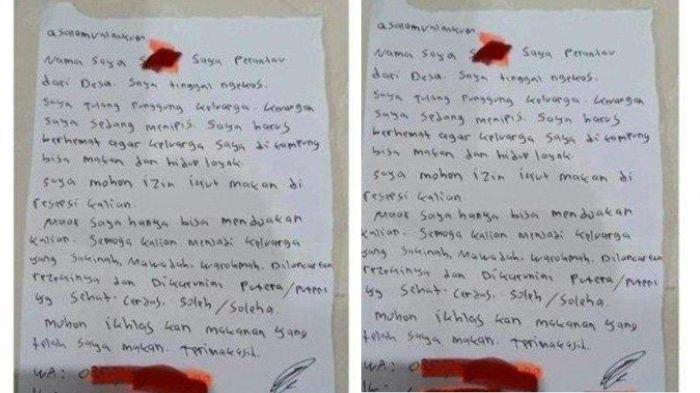 asalamualaikum
Nama saya S Saya Perantau
dari Desa. Saya tinggal ngekos.
Saya Tulang Punggung keluarga. keuangan
Saya sedang menipis. Saya harus
berhemat agar keluarga saya di kampung
bisa makan dan hidup layak.
Saya mohon izin ikut makan di
resepsi kalian.
Maaf saya hanya bisa mendoakan
kalian. Semoga kalian menjadi keluarga
yang Sakinah, Mawadah, Warohmah. Dilancarkan
rezekinya dan Dikaruniai Putera/puteri
yg Sehat. Cerdas. Soleh/Soleha.
Mohon ikhlas kan makanan yang
telah saya makan. Terimakasih.
WA: 08
asalamualaikum
Nama saya S Saya Perantau
dari Desa. Saya tinggal ngekos.
Saya Tulang Punggung keluarga. keuangan
Saya sedang menipis. Saya harus
berhemat agar keluarga saya di kampung
bisa makan dan hidup layak.
Saya mohon izin ikut makan di
resepsi kalian.
Maaf saya hanya bisa mendoakan
kalian. Semoga kalian menjadi keluarga
yang Sakinah, Mawadah, Warohmah. Dilancarkan
rezekinya dan Dikaruniai Putera/puteri
yg Sehat. Cerdas. Soleh/Soleha.
Mohon ikhlas kan makanan yang
telah saya makan. Terimakasih.
WA: 08